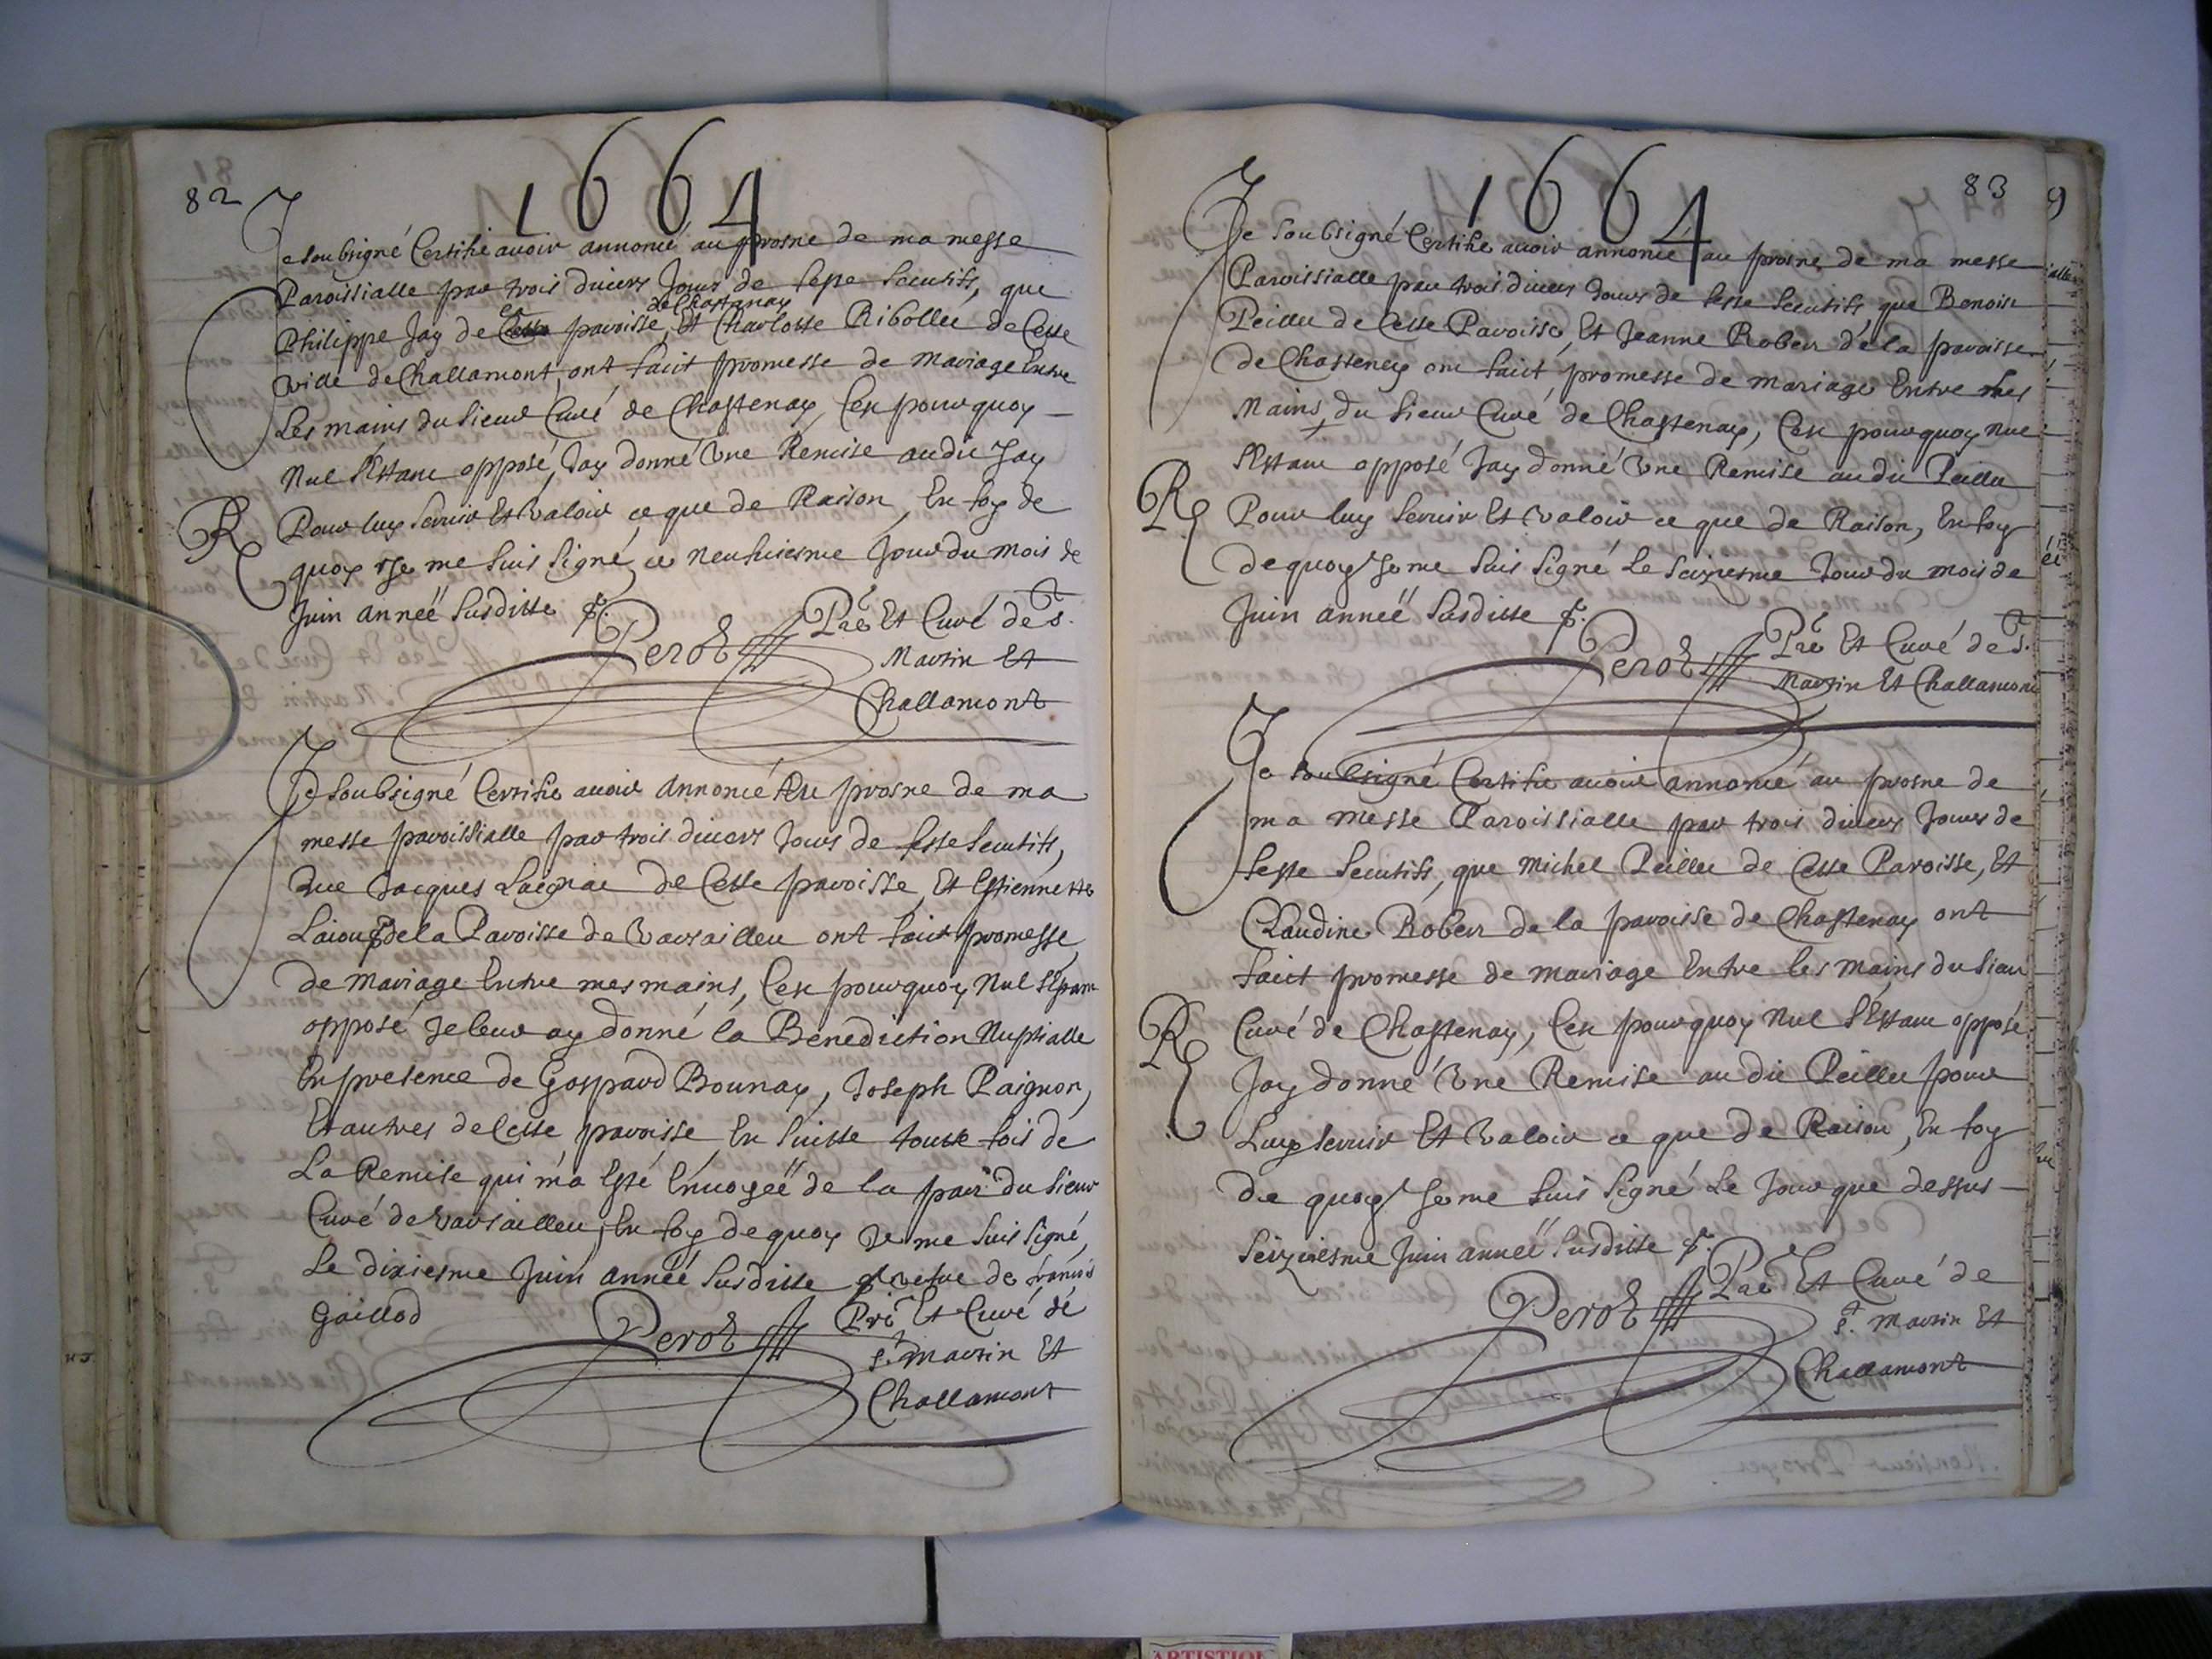 82
1664
Je soubsigné Certifie avoir annoncé au prosne de ma messe
Paroissialle par trois divers Jours de feste secutifs, que
de Chastenay
Philippe Jay de la paroisse, Et Charlotte Ribollet de Cette
ville de Challamont, ont faict promesse de mariage Entre
Les mains du sieur Curé de Chastenay, C'est pourquoy
Nul s'Estant opposé, J'ay donné Une Remise audit Jay
R Pour luy servir Et Valoir ce que de Raison, En foy de
quoy Je me suis signé ce neufviesme Jour du mois de
Juin année susditte
Perot Pre Et Curé de St.
Martin Et
Challamont
Je soubsigné Certifie avoir annoncé Au prosne de ma
messe paroissialle par trois divers Jours de feste secutifs,
Que Jacques de Cette paroisse, Et Estiennette
de la Paroisse de Varsailleu ont faict promesse
de mariage Entre mes mains, C'est pourquoy Nul s'Estant
opposé Je leur ay donné la Benediction Nuptialle
En presence de Gaspard Bounay, Joseph Paignon,
Et autres de Cette paroisse, En suitte toutte fois de
La Remise qui m'a Esté Envoyeë de la part du sieur
Curé de Varsailleu, En foy de quoy Je me suis signé,
Le dixiesme Juin année susditte vefve de francois
Gaillod
Perot Pre Et Curé de
St. Martin Et
Challamont
83
9
1664
Je soubsigné Certifie avoir annoncé au prosne de ma messe
Paroissialle par trois divers Jours de feste secutifs, que Benoist
Peillet de Cette Paroisse, Et Jeanne Robert de la paroisse
de Chasteney ont faict promesse de mariage Entre les
Mains du sieur Curé de Chastenay, C'est pourquoy Nul
s'Estant opposé J'ay donné Une Remise audit Peillet
R Pour luy servir Et Valoir ce que de Raison, En foy
de quoy Je me suis signé Le seiziesme Jour du mois de
Juin anneë susditte
Perot Pre Et Curé de St.
Martin Et Challamont
Je soubsigné Certifie avoir annoncé au prosne de
ma messe Paroissialle par trois divers Jours de
feste secutifs, que Michel Peillet de Cette Paroisse, Et
Claudine Robert de la paroisse de Chastenay ont
faict promesse de mariage Entre les mains du sieur
R Curé de Chastenay, C'est pourquoy Nul s'Estant opposé
J'ay donné Une Remise audit Peillet pour
Luy servir Et Valoir ce que de Raison, En foy
de quoy Je me suis signé Le Jour que dessus
seiziesme Juin anneë susditte
Perot Pre Et Curé de
St. Martin Et
Challamont